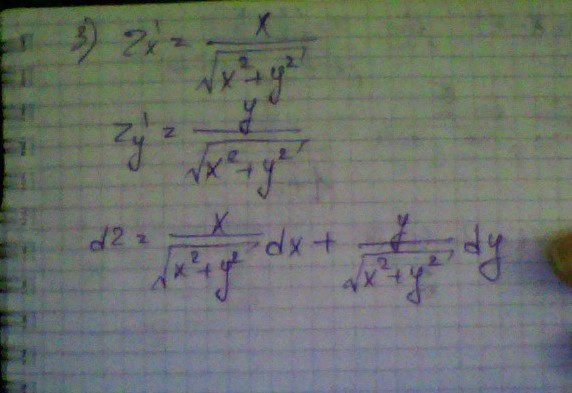 3) z'x = x/√(x²+y²)
z'y = y/√(x²+y²)
dz = x/√(x²+y²) dx + y/√(x²+y²) dy